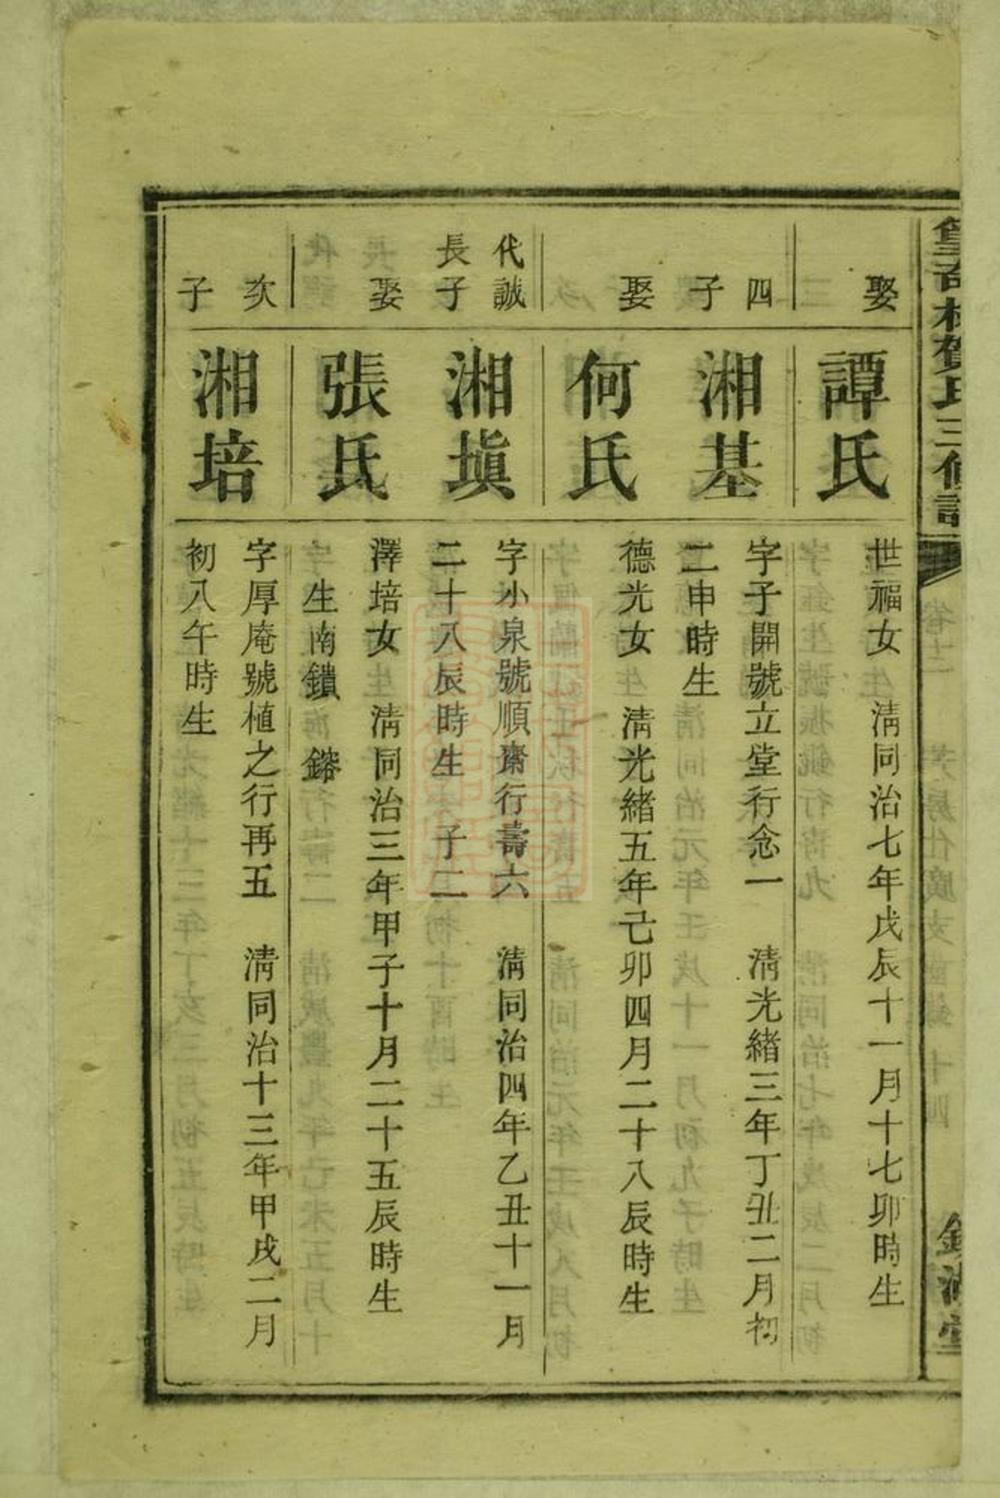 娶
譚氏
世福女 淸同治七年戊辰十一月十七卯時生
四子
湘基
字子開號立堂行念一 淸光緒三年丁丑二月初
二申時生
娶
何氏
德光女 淸光緒五年己卯四月二十八辰時生
代誠長子
湘塡
字小泉號順齋行壽六 淸同治四年乙丑十一月
二十八辰時生 子二
娶
張氏
澤培女 淸同治三年甲子十月二十五辰時生
生南鎖 鎔
次子
湘培
字厚庵號植之行再五 淸同治十三年甲戌二月
初八午時生